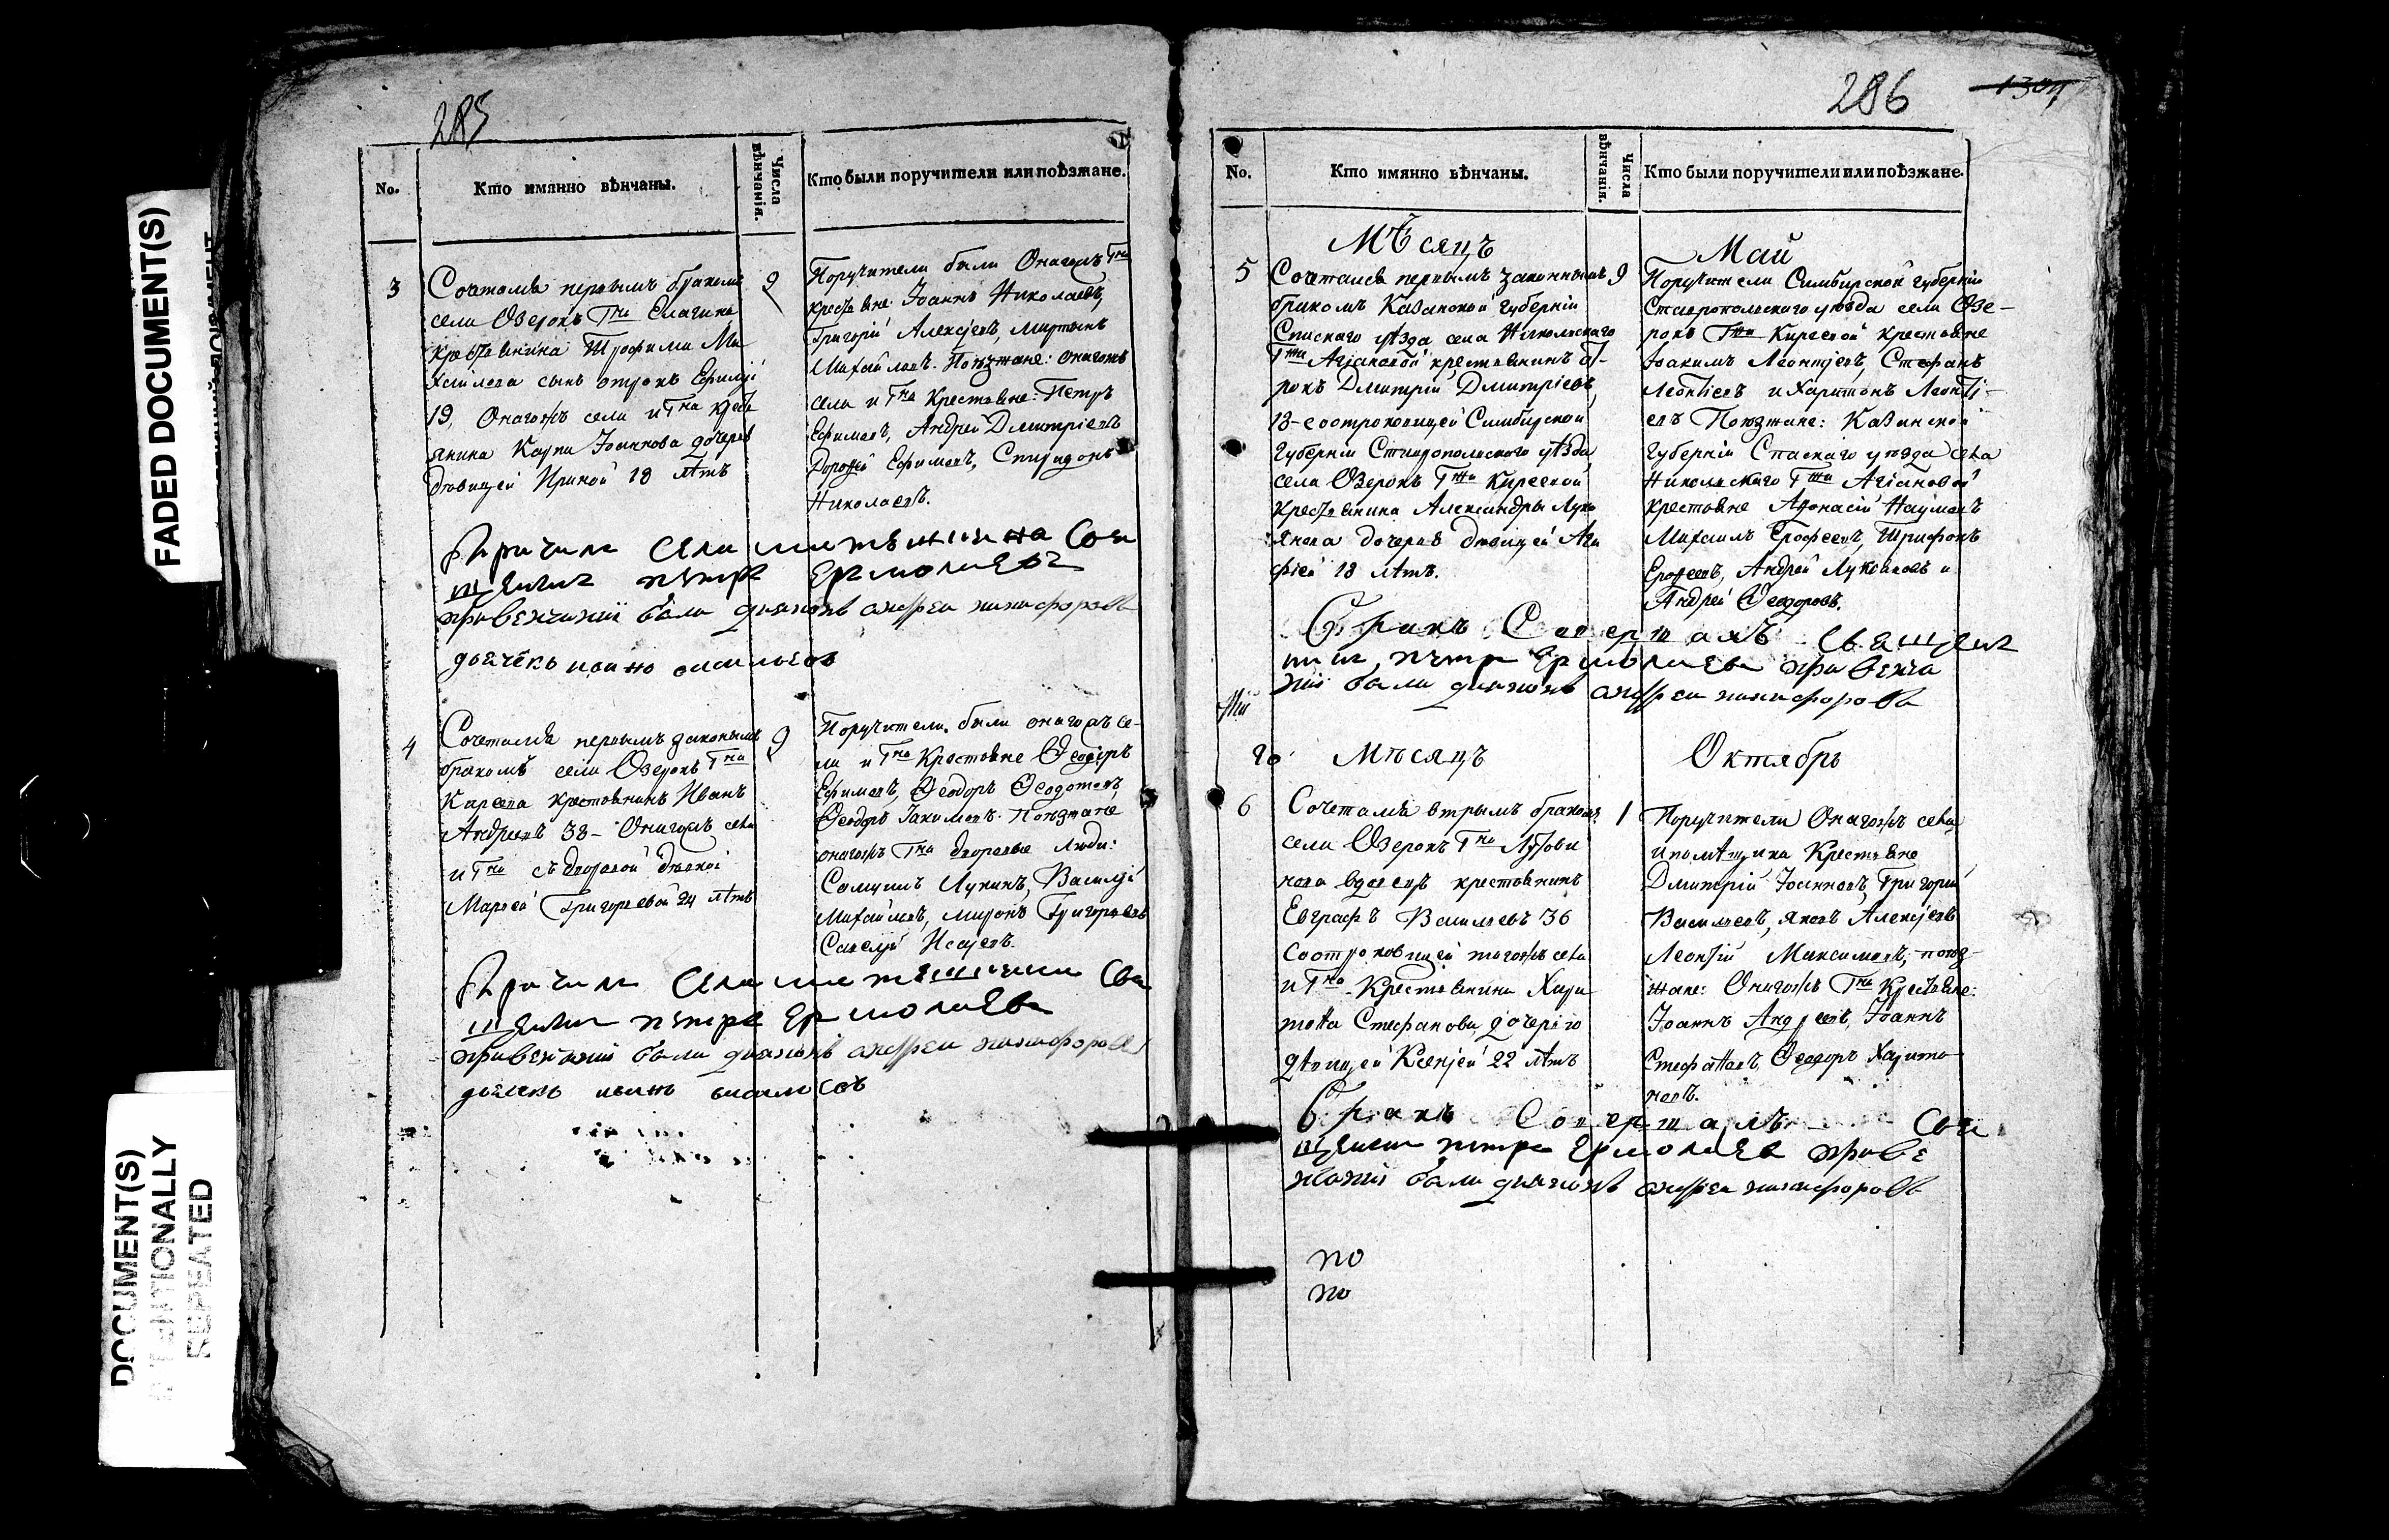 FADED DOCUMENT(S)
DOCUMENT(S)
INTENTIONALLY
REPEATED
285
No.
Кто имянно вѣнчаны.
Числа вѣнчанія.
Кто были поручители или поѣзжане.
3
Сочетался первымъ бракомъ
села Озерокъ Г-на Елагина
крестьянина Трофима Ми
хайлова сынъ отрокъ
19, Онагожъ села и Г-на кресть
янина Карпа Іоаннова дочерью
девицей Ириной 18 лѣтъ
9
Поручители были Онагожъ Г-на
крестьяне: Іоаннъ Николаевъ,
Григорій Алексѣевъ, Мартынъ
Михайловъ. Поѣзжане: онагожъ
села и Г-на Крестьяне: Петръ
Ефимовъ, Андрей Дмитріевъ
Дорофей Ефимовъ, Спиридонъ
Николаевъ.
петръ Ермолаевъ
привенчаніи были диаконъ андреи никифоровъ
дьячекъ
4
Сочетался первымъ законнымъ
бракомъ села Озерокъ Г-на
Киреева крестьянинъ Иванъ
Андреевъ 38- Онагожъ села
и Г-на съ дворовой девкой
Марѳой Григорьевой 24 лѣтъ
9
Поручители были онагожъ се-
ла и Г-на Крестьяне Ѳеодоръ
Ефимовъ, Ѳеодоръ Ѳеодотовъ,
Ѳеодоръ Іакимовъ. Поѣзжане
онагожъ Г-на дворовые люди:
Самуилъ Лукинъ, Василій
Михайловъ, Миронъ Григорьевъ
Савелій Исаевъ.
петръ Ермолаевъ
привенчаніи были диаконъ андреи никифоровъ
дьячекъ иванъ
286
No.
Кто имянно вѣнчаны.
Числа вѣнчанія.
Кто были поручители или поѣзжане.
Мѣсяцъ
Май
5
Сочетался первымъ законнымъ
бракомъ Казанской губерніи
Спаскаго уѣзда села Никольскаго
Г-жи крестьянинъ от-
рокъ Дмитрій Дмитріевъ,
18- с отроковицей Симбирской
Губерніи Ставропольскаго уѣзда
села Озерокъ Г-жи Киреевой
крестьянина Александра Лукь
янова дочерью девицей Ага
фіей 18 лѣтъ.
9
Поручители Симбирской губерніи
Ставропольскаго уѣзда села Озе-
рокъ Г-жи Киреевой крестьяне
Іоакимъ Леонтіевъ, Стефанъ
Леонтіевъ и Харитонъ Леонті-
евъ Поѣзжане: Казанской
губерніи Спаскаго уѣзда села
Никольскаго Г-жи
крестьяне Афонасій Наумовъ
Михаилъ Ерофеевъ, Трифонъ
Ерофеевъ, Андрей Лукояновъ и
Андрей Ѳеодоровъ.
Бракъ Совершалъ Священ
никъ, петръ Ермолаевъ привенча
ніи были диаконъ андреи никифоровъ
Мѣсяцъ
Октябрь
6
Сочетался вторымъ бракомъ
села Озерокъ Г-на Лутови
нова вдовецъ крестьянинъ
Евграфъ Васильевъ 36
с отроковицей тогожъ села
и Г-на Крестьянина Хари
тона Стефанова дочерью
девицей Ксеніей 22 лѣтъ
1
Поручители Онагожъ села
и помѣщика Крестьяне
Дмитрій Іоанновъ, Григорій
Васильевъ, Яковъ Алексѣевъ
Леонтій Максимовъ, поѣз-
жане: Онагожъ Г-на Крестьяне:
Іоаннъ Андреевъ, Іоаннъ
Стефановъ, Ѳеодоръ Харито-
новъ.
Бракъ Совершалъ Свя
щенникъ петръ Ермолаевъ
были диаконъ андреи никифоровъ
по
по